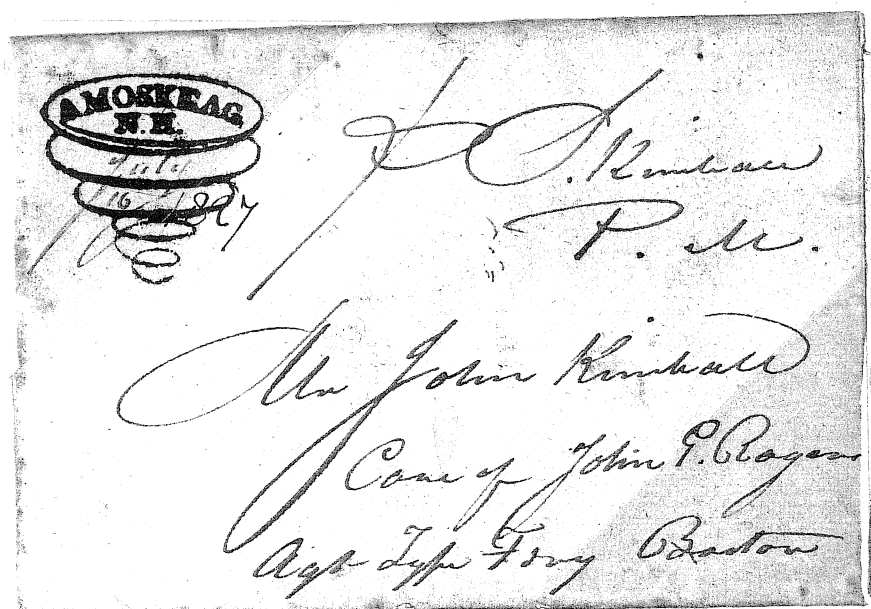 AMOSKEAG
N. H.
July
16 1827
S. Kimball
P. M.
Mr John Kimball
Care of John E. Rogers
Agt Type Fory Boston